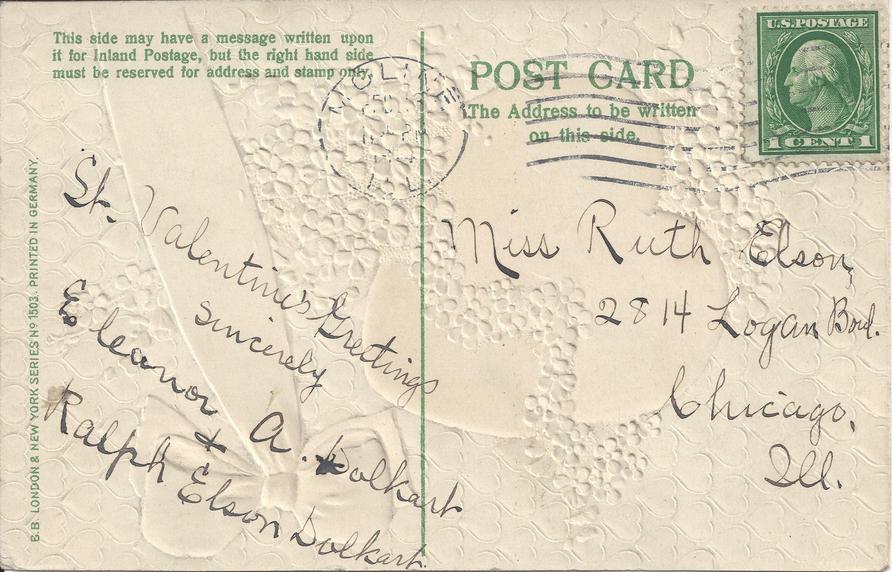 This side may have a message written upon
it for Inland Postage, but the right hand side
must be reserved for address and stamp only.
POST CARD
The Address to be written
on this side.
U.S. POSTAGE
1 CENT 1
MOLINE
B.B. LONDON & NEW YORK SERIES Nº 1503. PRINTED IN GERMANY.
St. Valentine's Greetings
Sincerely
Eleanor A. Dolkart
+
Ralph Elson Dolkart.
Miss Ruth Elson,
2814 Logan Bovd.
Chicago,
Ill.